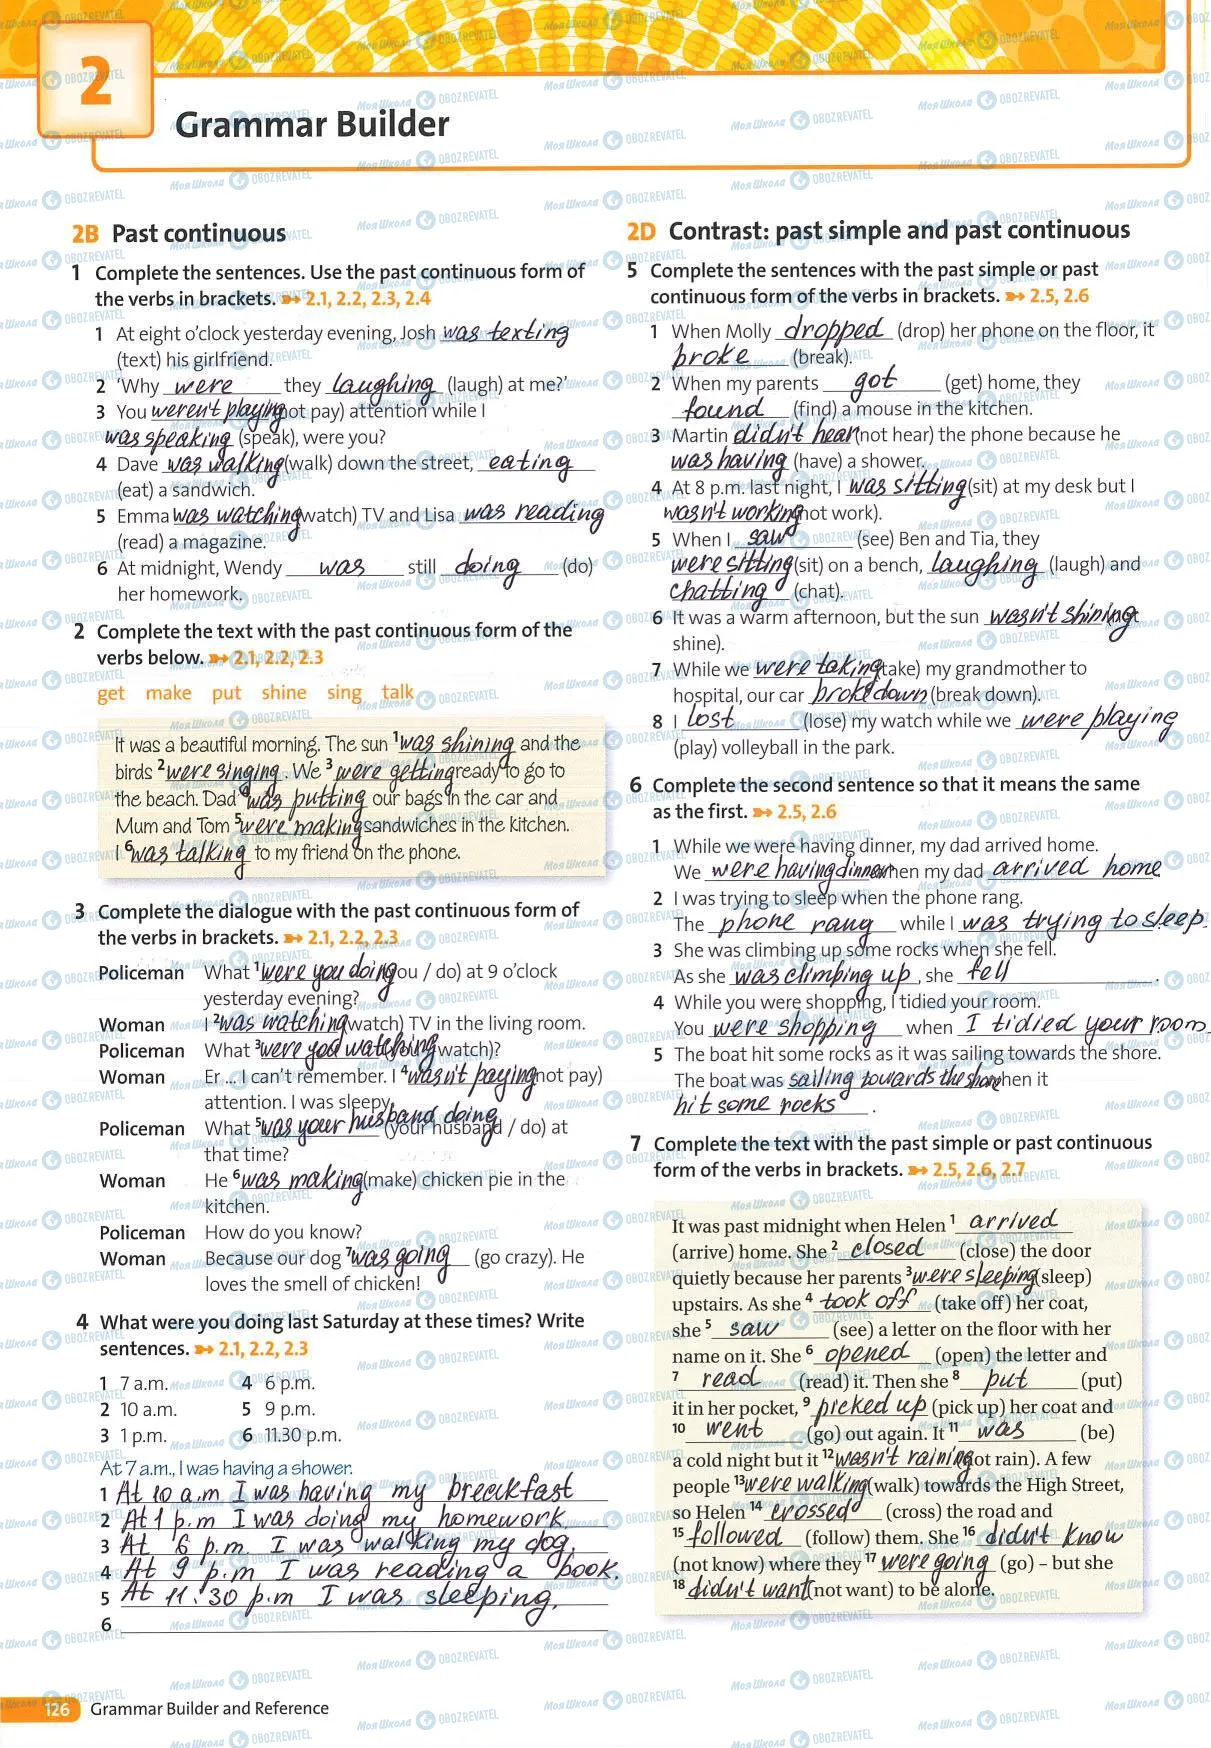 2
Grammar Builder
2B Past continuous
1 Complete the sentences. Use the past continuous form of
the verbs in brackets. ➸ 2.1, 2.2, 2.3, 2.4
1 At eight o'clock yesterday evening, Josh was texting
(text) his girlfriend.
2 'Why were they laughing (laugh) at me?'
3 You weren't playing not pay) attention while I
was speaking (speak), were you?
4 Dave was walking (walk) down the street, eating
(eat) a sandwich.
5 Emma was watching watch) TV and Lisa was reading
(read) a magazine.
6 At midnight, Wendy was still doing (do)
her homework.
2 Complete the text with the past continuous form of the
verbs below. ➸ 2.1, 2.2, 2.3
get make put shine sing talk
It was a beautiful morning. The sun 1 was shining and the
birds 2 were singing. We 3 were getting ready to go to
the beach. Dad 4 was putting our bags in the car and
Mum and Tom 5 were making sandwiches in the kitchen.
I 6 was talking to my friend on the phone.
3 Complete the dialogue with the past continuous form of
the verbs in brackets. ➸ 2.1, 2.2, 2.3
Policeman What 1 were you doing ou / do) at 9 o'clock
yesterday evening?
Woman I 2 was watching watch) TV in the living room.
Policeman What 3 were you watching (you / watch)?
Woman Er ... I can't remember. I 4 wasn't paying not pay)
attention. I was sleepy.
Policeman What 5 was your husband doing (your husband / do) at
that time?
Woman He 6 was making (make) chicken pie in the
kitchen.
Policeman How do you know?
Woman Because our dog 7 was going (go crazy). He
loves the smell of chicken!
4 What were you doing last Saturday at these times? Write
sentences. ➸ 2.1, 2.2, 2.3
1 7 a.m. 4 6 p.m.
2 10 a.m. 5 9 p.m.
3 1 p.m. 6 11.30 p.m.
At 7 a.m., I was having a shower.
1 At 10 a.m I was having my breeckfast
2 At 1 p.m I was doing my homework.
3 At 6 p.m. I was walking my dog.
4 At 9 p.m I was reading a book.
5 At 11:30 p.m I was sleeping.
6
126 Grammar Builder and Reference
2D Contrast: past simple and past continuous
5 Complete the sentences with the past simple or past
continuous form of the verbs in brackets. ➸ 2.5, 2.6
1 When Molly dropped (drop) her phone on the floor, it
broke (break).
2 When my parents got (get) home, they
found (find) a mouse in the kitchen.
3 Martin didn't hear (not hear) the phone because he
was having (have) a shower.
4 At 8 p.m. last night, I was sitting (sit) at my desk but I
wasn't working not work).
5 When I saw (see) Ben and Tia, they
were sitting (sit) on a bench, laughing (laugh) and
chatting (chat).
6 It was a warm afternoon, but the sun wasn't shining
shine).
7 While we were taking take) my grandmother to
hospital, our car broke down (break down).
8 I lost (lose) my watch while we were playing
(play) volleyball in the park.
6 Complete the second sentence so that it means the same
as the first. ➸ 2.5, 2.6
1 While we were having dinner, my dad arrived home.
We were having dinner when my dad arrived home
2 I was trying to sleep when the phone rang.
The phone rang while I was trying to sleep.
3 She was climbing up some rocks when she fell.
As she was climbing up, she fell.
4 While you were shopping, I tidied your room.
You were shopping when I tidied your room
5 The boat hit some rocks as it was sailing towards the shore.
The boat was sailing towards the shore when it
hit some rocks.
7 Complete the text with the past simple or past continuous
form of the verbs in brackets. ➸ 2.5, 2.6, 2.7
It was past midnight when Helen 1 arrived
(arrive) home. She 2 closed (close) the door
quietly because her parents 3 were sleeping (sleep)
upstairs. As she 4 took off (take off) her coat,
she 5 saw (see) a letter on the floor with her
name on it. She 6 opened (open) the letter and
7 read (read) it. Then she 8 put (put)
it in her pocket, 9 picked up (pick up) her coat and
10 went (go) out again. It 11 was (be)
a cold night but it 12 wasn't raining not rain). A few
people 13 were walking (walk) towards the High Street,
so Helen 14 crossed (cross) the road and
15 followed (follow) them. She 16 didn't know
(not know) where they 17 were going (go) – but she
18 didn't want (not want) to be alone.
МояШкола OBOZREVATEL